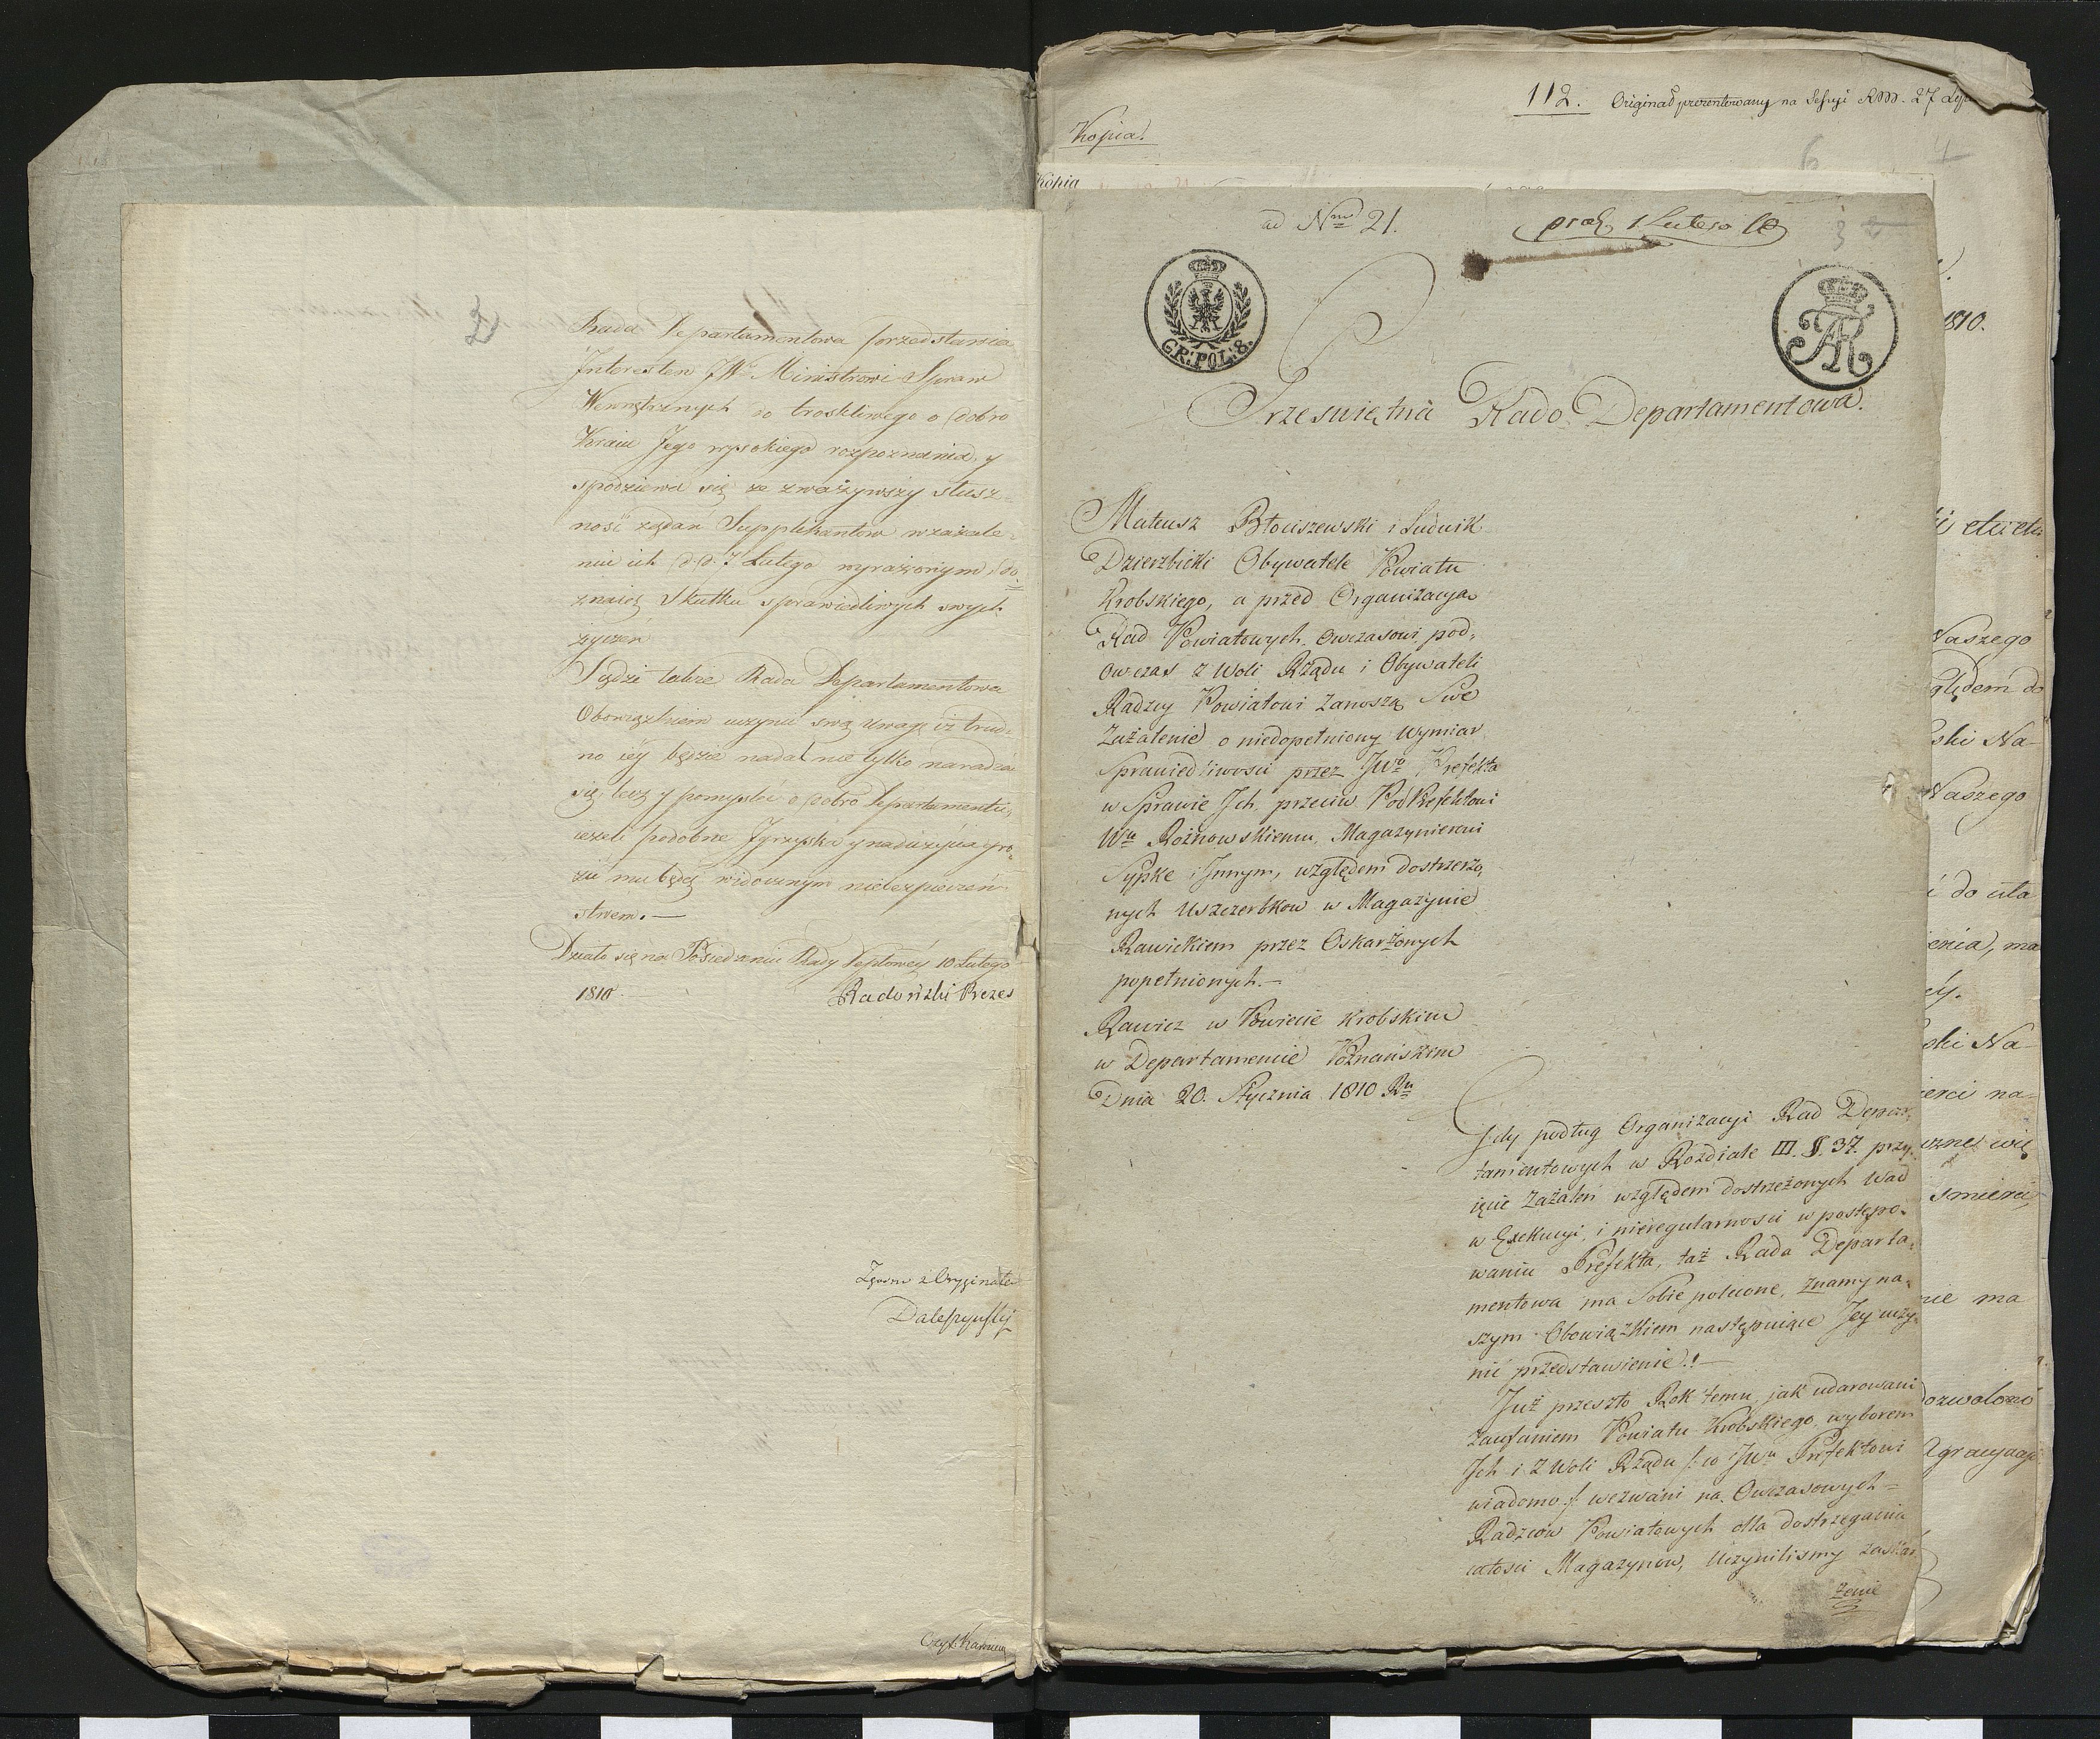 2
Rada Departamentowa przedstawia
Interessen JW. Ministrowi Spraw
Wewnętrznych do troskliwego o dobro
Kraiu Jego wysokiego rozpoznania, y
spodziewa się że zważywszy słusz=
ność żądań Supplikantow w zażale=
niu ich d. d. 7 Lutego wyrażonym do=
znaią skutku sprawiedliwych swych
życzeń
Sądzi także Rada Departamentowa
Obowiązkiem uczynić swą uwagę iż trud=
no iéy będzie nadal nie tylko naradzać
się, lecz y pomyśleć o dobro Departamentu,
ieżeli podobne Igrzyska y nadużycia gro=
zić mu będą widocznym niebezpieczeń
stwem. —
Działo się na Posiedzeniu Rady Deptowéy 10 Lutego
1810. — Radoński Prezes
Zgodno z Oryginałem
Kopia.
112. Originał prezentowany na Sessyi RM. 27
6 4
Kopia
ad Nrm 21. 1 Lutego
3
GR: POL: 8.
AR
Prześwietna Rado Departamentowa.
Mateusz Błociszewski i Ludwik
Dzierzbicki Obywatele Powiatu
Krobskiego, a przed Organizacyą
Rad Powiatowych Owczasowi pod=
owczas z Woli Rządu i Obywateli
Radzcy Powiatowi zanoszą Swe
Zażalenie o niedopełniony Wymiar
Sprawiedliwości przez JWo Prefekta
w Sprawie Ich przeciw PodPrefektowi
Wu Rożnowskiemu, Magazynierowi
Sypke i Innym, względem dostrzeżo=
nych Uszczerbkow w Magazynie
Rawickiem przez Oskarżonych
popełnionych. —
Rawicz w Powiecie Krobskim
w Departamencie Poznańskim
Dnia 20. Stycznia 1810 Ru
Gdy podług Organizacyi Rad Depar=
tamentowych w Rozdiale III. §. 37. przy=
ięcie Zażaleń względem dostrzeżonych Wad
w Exekucyi, i nieregularności w postępo=
waniu Prefekta, taż Rada Departa=
mentowa ma Sobie polecone, znamy na=
szym Obowiązkiem następuiące Jey uczy=
nić przedstawienie!. —
Już przeszło Rok temu, jak udarowani
zaufaniem Powiatu Krobskiego, wyborem
Ich i z Woli Rządu /: co JWu Prefektowi
wiadomo :/ wezwani na Owczasowych
Radzców Powiatowych dla dostrzegania
całości Magazynow, Uczyniliśmy zaskar
żenie
1810.
Naszego
ględem do
ski Na-
Naszego
do
enia, ma
ski Na-
ierci na-
śmierci,
nie ma
dozwolono